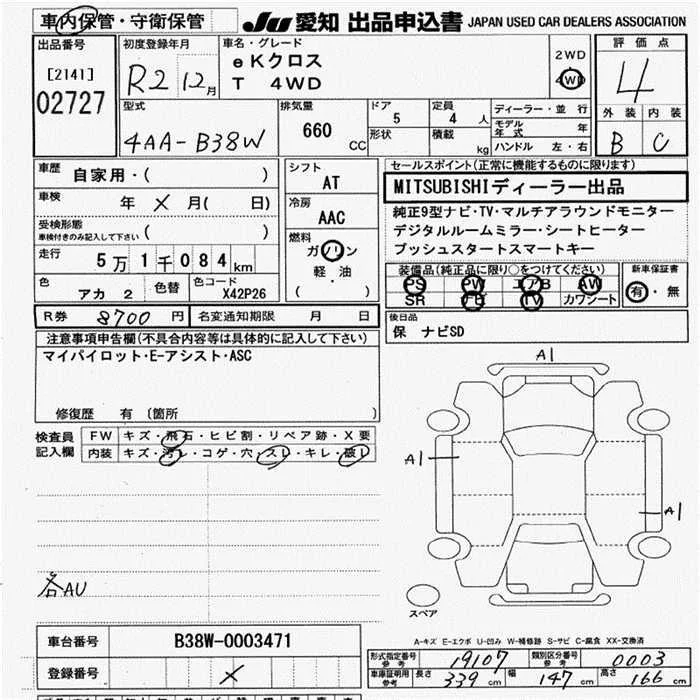 車内保管・守衛保管 JU 愛知 出品申込書 JAPAN USED CAR DEALERS ASSOCIATION
出品番号 初度登録年月 車名・グレード 評価点
[2141] R2 12月 eKクロス 2WD 4
02727 T 4WD 4WD
型式 排気量 ドア 定員 ディーラー・並行 外装 内装
4AA-B38W 660 CC 5 4人 モデル年式 年 B C
形状 積載 kg ハンドル 左・右
車歴 自家用・( ) シフト AT セールスポイント(正常に機能するものに限ります)
車検 年 X 月( 日) 冷房 AAC MITSUBISHIディーラー出品
受検形態 車検付きのみ記入して下さい ( ) 純正9型ナビ・TV・マルチアラウンドモニター
走行 5万1千084km 燃料 ガソリン デジタルルームミラー・シートヒーター
軽・油 プッシュスタートスマートキー
色 アカ 2 色替 色コード X42P26 ( )
装備品(純正品に限り○をつけてください) 新車保証書
PS PW エアB AW 有・無
SR TV カワシート
R券 8700円 名変通知期限 月 日 後日品
保 ナビSD
注意事項申告欄(不具合内容等は具体的に記入して下さい)
マイパイロット・E-アシスト・ASC
修復歴 有 (箇所 )
検査員記入欄 FW キズ・飛石・ヒビ割・リペア跡・X要
内装 キズ・汚レ・コゲ・穴・スレ・キレ・破レ
A1
A1
A1
各AU
スペア
A-キズ E-エクボ U-凹み W-補修跡 S-サビ C-腐食 XX-交換済
車台番号 B38W-0003471
登録番号 X
形式指定番号 参考 19107 類別区分番号 参考 0003
車庫証明用 参考 長さ 339 cm 幅 147 cm 高さ 166 cm